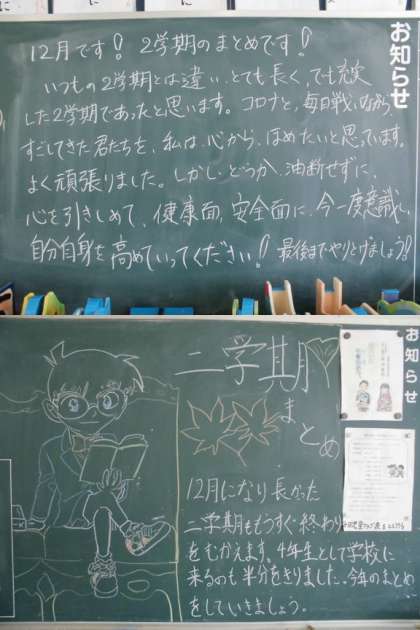 お知らせ
12月です! 2学期のまとめです!
いつもの2学期とは違い、とても長く、でも充実
した2学期であったと思います。コロナと、毎日戦いながら、
すごしてきた君たちを、私は、心から、ほめたいと思っています。
よく頑張りました。しかし、どうか、油断せずに、
心を引きしめて、健康面、安全面に、今一度意識し、
自分自身を高めていってください! 最後までやりとげましょう!
お知らせ
二学期
まとめ
12月になり長かった
二学期ももうすぐ終わり
をむかえます。4年生として学校に
来るのも半分をきりました。今年のまとめ
をしていきましょう。